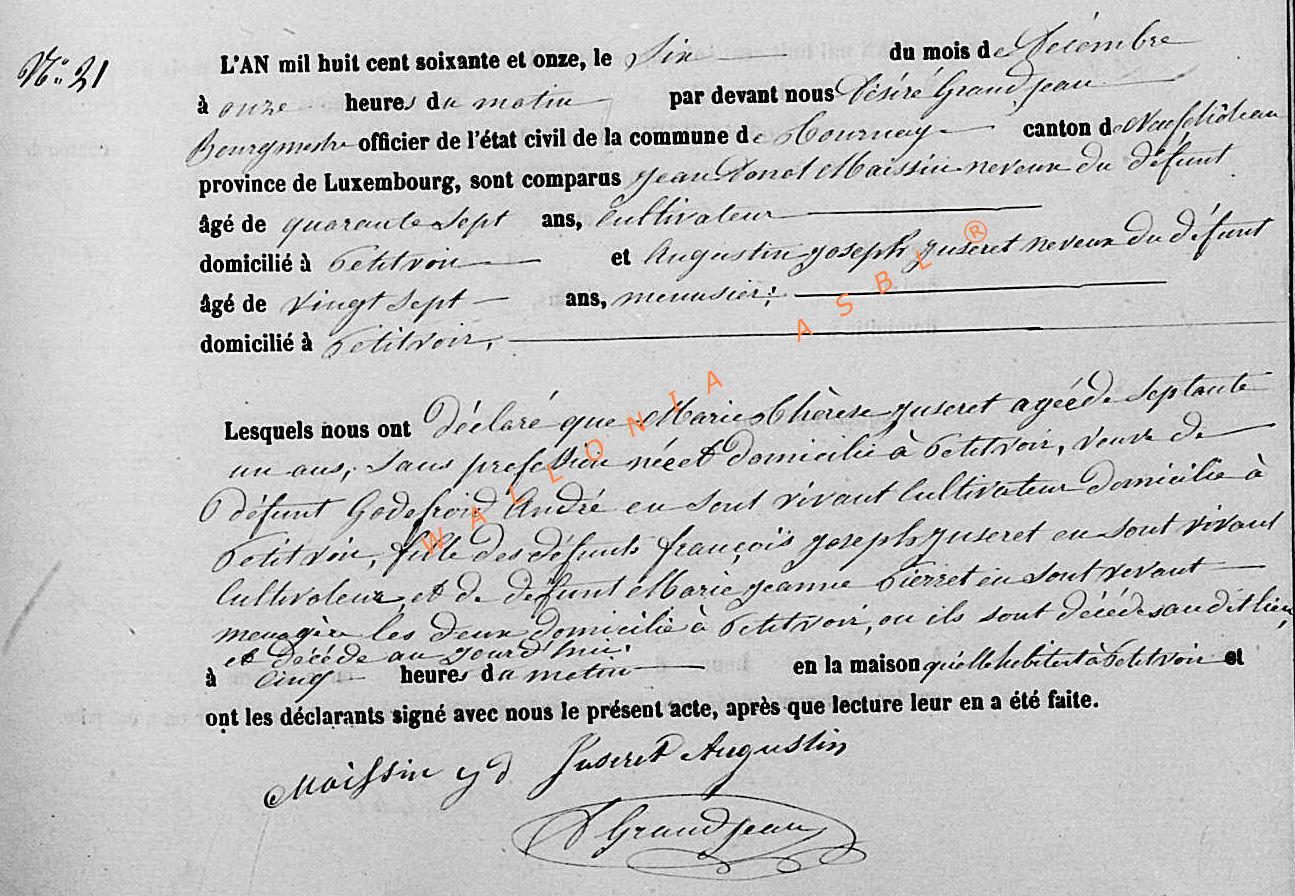 N° 21
L'AN mil huit cent soixante et onze, le Six du mois de Décembre
à onze heures du matin par devant nous Désiré Grandjean
Bourgmestre officier de l'état civil de la commune de Tournay canton de Neufchâteau
province de Luxembourg, sont comparus Jean Donat Maissin neveux du défunt
âgé de quarante sept ans, Cultivateur
domicilié à Petitvoir et Augustin Joseph Juseret neveux du défunt
âgé de vingt sept ans, menusier;
domicilié à Petitvoir,
Lesquels nous ont déclaré que Marie Thérèse Juseret agéé de Septante
un ans, sans profession néé et domicilié à Petitvoir, veuve de
défunt Godefroid André en sont vivant Cultivateur domicilié à
Petitvoir, fille des défunts françois Joseph Juseret en sont vivant
Cultivateur, et de défunt Marie Jeanne Pierret en sont vevant
menagère les deux domicilié à Petitvoir, ou ils sont décédés au dit lieu,
et décédé au jourd'hui.
à Cinq heures du matin en la maison quélle habitent à Petitvoir et
ont les déclarants signé avec nous le présent acte, après que lecture leur en a été faite.
Maissin J D Juseret Augustin
D Grandjean
WALLONIA ASBL ®